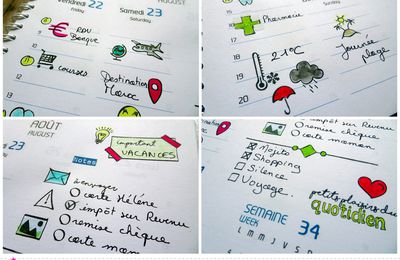 Vendredi 22
Friday
AUGUST
Samedi 23
Saturday
8
9
€ RDV
Banque
10
11
courses
Destination
Maroc
13
9
Pharmacie
10
12
21°C
Journée
plage
18
19
20
AOÛT
AUGUST
23
important
VACANCES
Notes
à envoyer
O carte Hélène
impôt sur Revenu
O remise chèque
O carte maman
O impôt sur Revenu
O remise chèque
O carte maman
Mojito
Shopping
Silence
Voyage.
petits plaisirs du
quotidien
SEMAINE
WEEK
34
L M M J V S D